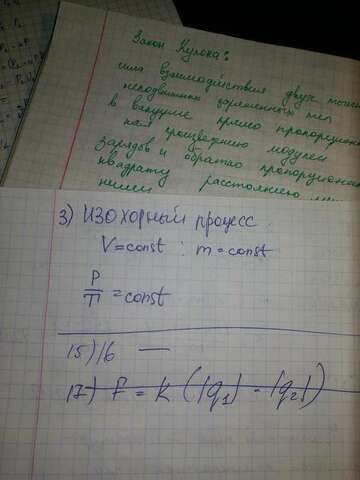 Закон Кулона:
сила взаимодействия двух точеч
неподвижных заряженных тел
в вакууме прямо пропорцион
на произведению модулей
зарядов и обратно пропорционал
квадрату расстоянию
ними
3) Изохорный процесс.
V=const ; m=const
P/T = const
15) 16 —
17) F = K (|q1| - |q2|)